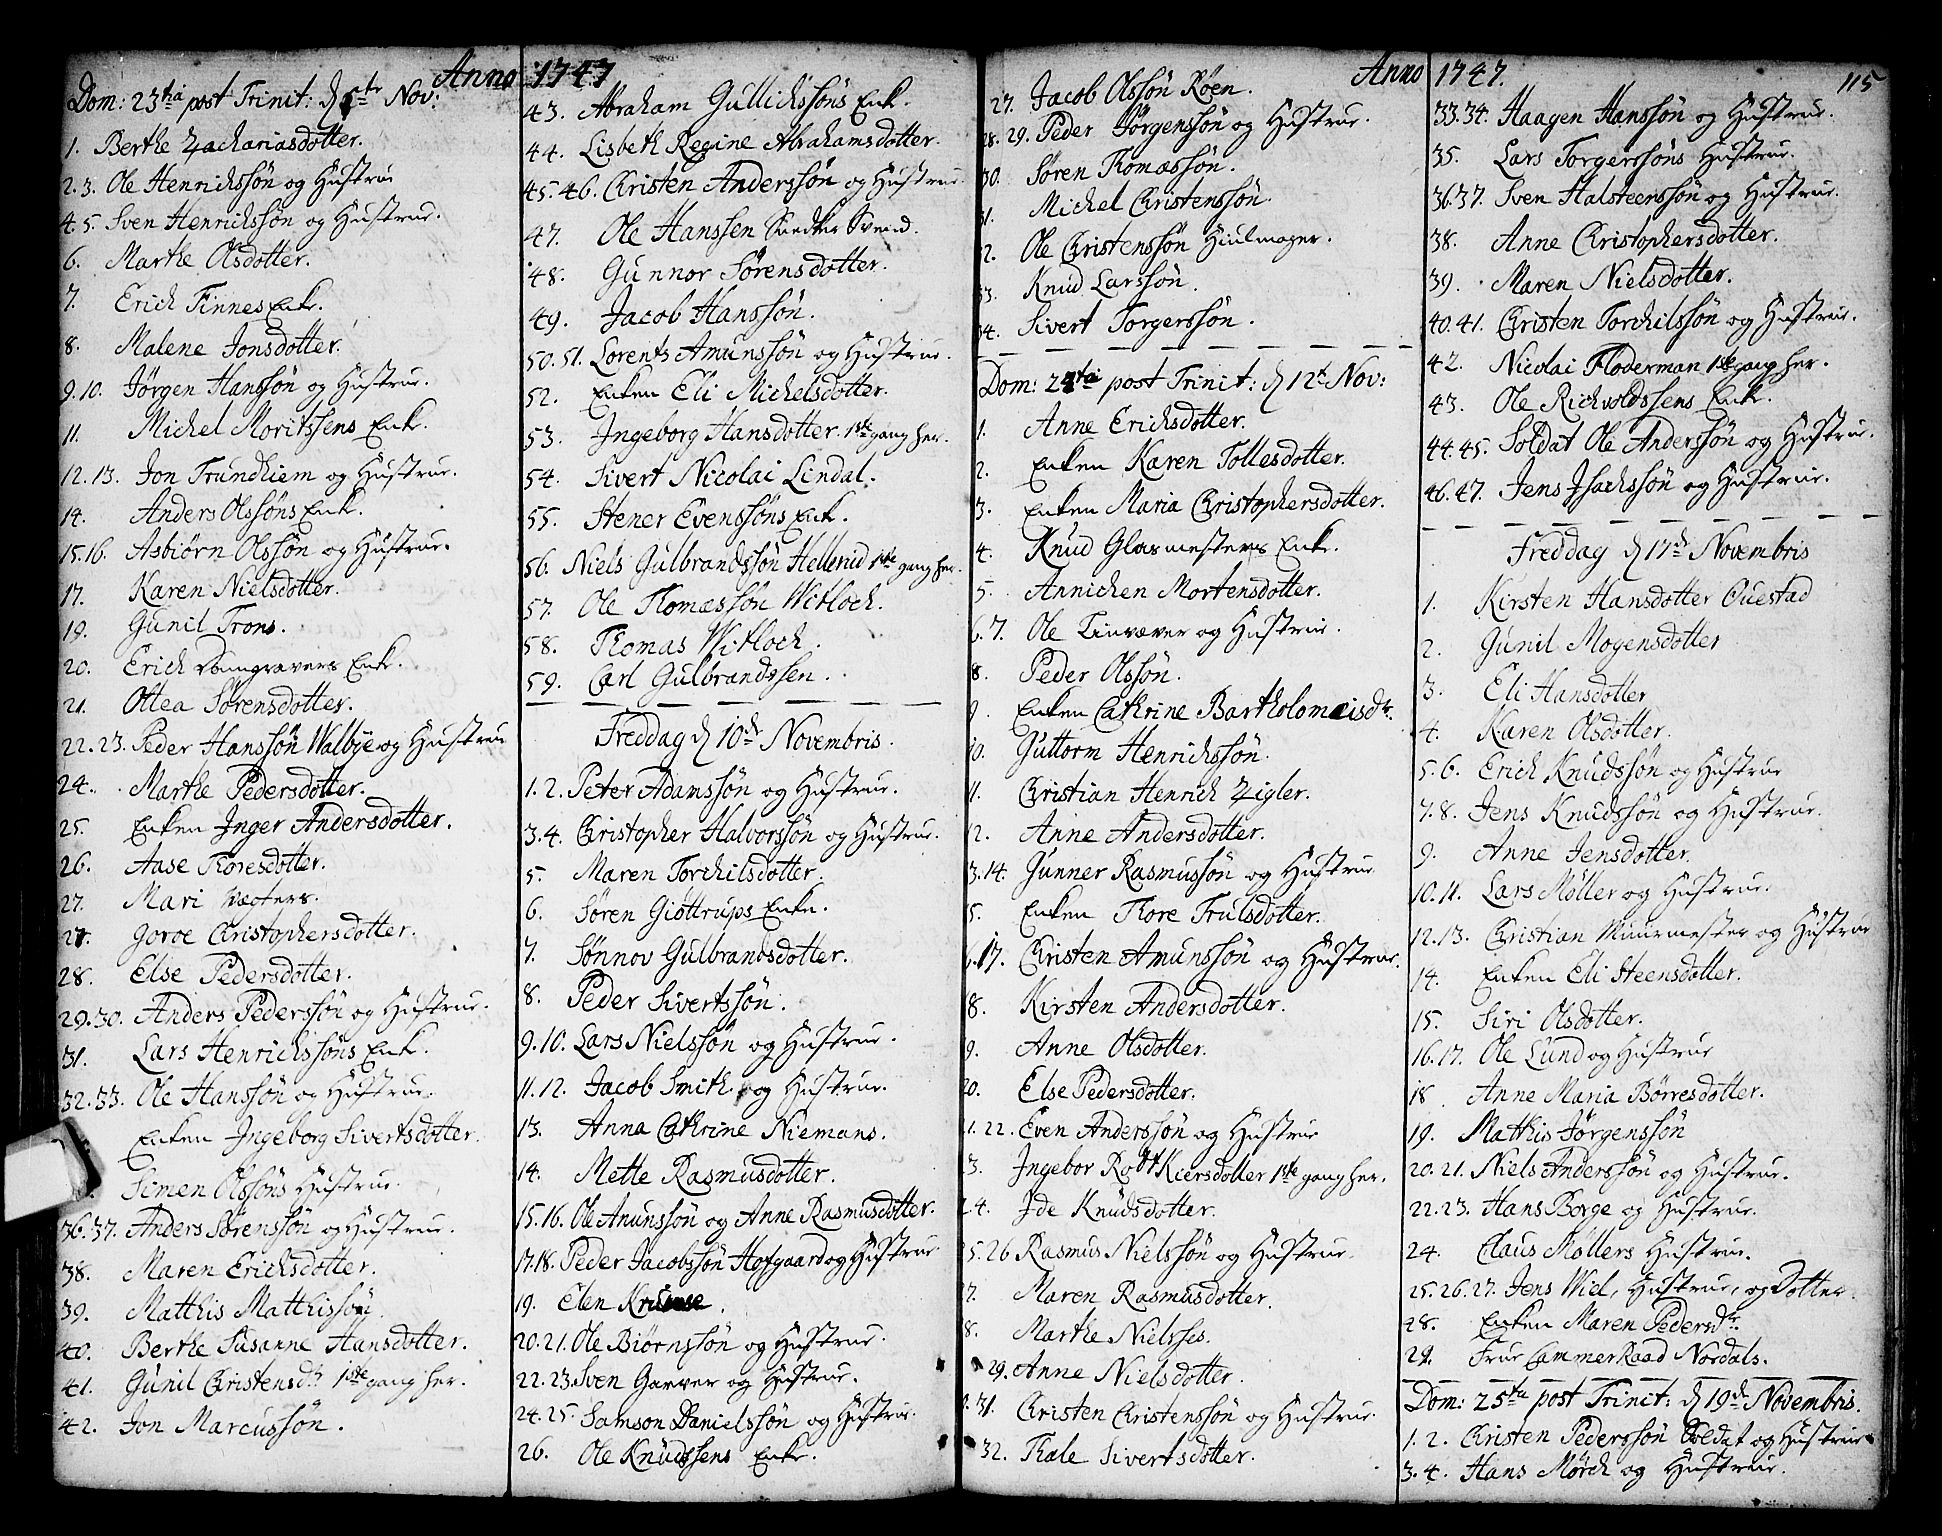 Anno 1747
Dom: 23tia post Trinit: d 5te Nov:
1. Berthe Zachariasdotter.
2. 3. Ole Henrichssøn og Hustrue
4. 5. Sven Henrichssøn og Hustrue.
6. Marthe Olsdotter.
7. Erich Finnes Enk.
8. Malene Jonsdotter.
9. 10. Jørgen Hanssøn og Hustrue.
11. Michel Moritssens Enk.
12. 13. Jon Trundhiem og Hustrue.
14. Anders Olssøns Enk.
15. 16. Asbiørn Olssøn og Hustrue.
17. Karen Nielsdotter.
19. Gunil Trons.
20. Erich Damgravers Enk.
21. Ottea Sørensdotter.
22. 23. Peder Hanssøn Walbye og Hustrue
24. Marthe Pedersdotter.
25. Enken Inger Andersdotter.
26. Aase Thoresdotter.
27. Mari Vægters.
27. Goroe Christophersdotter.
28. Else Pedersdotter.
29. 30. Anders Pederssøn og Hustrue.
31. Lars Henrichssøns Enk.
32. 33. Ole Hanssøn og Hustrue.
Enken Ingeborg Sivertsdotter.
Simen Olssøns Hustrue.
36. 37. Anders Sørenssøn og Hustrue.
38. Maren Erichsdotter.
39. Matthis Matthissøn
40. Berthe Susanne Hansdotter.
41. Gunil Christensdr. 1ste gang her.
42. Jon Marcussøn.
43. Abraham Gullichssøns Enk.
44. Lisbeth Regine Abrahamsdotter.
45. 46. Christen Anderssøn og Hustrue
47. Ole Hanssen Snedker Svend.
48. Gunnor Sørensdotter.
49. Jacob Hanssøn.
50. 51. Lorents Amunssøn og Hustrue.
52. Enken Eli Michelsdotter.
53. Ingeborg Hansdotter. 1ste gang her.
54. Sivert Nicolai Lindal.
55. Stener Evenssøns Enk.
56. Niels Gulbrandssøn Hellerud 1ste gang her.
57. Ole Thomæssøn Witloch.
58. Thomas Witloch.
59. Carl Gulbrandssen.
Freddag d 10de Novembris.
1. 2. Peter Adamssøn og Hustrue.
3. 4. Christopher Halvorssøn og Hustrue.
5. Maren Torchilsdotter.
6. Søren Giøttrups Enke.
7. Sønnov Gulbrandsdotter.
8. Peder Sivertssøn.
9. 10. Lars Nielssøn og Hustrue.
11. 12. Jacob Smith og Hustrue.
13. Anna Cathrine Niemans.
14. Mette Rasmusdotter.
15. 16. Ole Anunssøn og Anne Rasmusdotter.
17. 18. Peder Jacobssøn Hofgaard og Hustrue
19. Elen
20. 21. Ole Biørnssøn og Hustrue.
22. 23. Sven Garver og Hustrue.
24. 25. Samson Danielssøn og Hustrue.
26. Ole Knudssens Enke.
Anno 1747.
115
27. Jacob Olssøn Røen.
28. 29. Peder Jørgenssøn og Hustrue.
30. Søren Thomæssøn.
31. Michel Christenssøn.
2. Ole Christenssøn Hiulmager.
33. Knud Larssøn.
34. Sivert Torgerssøn.
Dom: 24tia post Trinit: d 12te Nov:
1. Anne Erichsdotter.
2. Enken Karen Tollesdotter.
3. Enken Maria Christophersdotter.
4. Knud Glasmesters Enke.
5. Annichen Mortensdotter.
6. 7. Ole Linvæver og Hustrue.
8. Peder Olssøn.
9. Enken Cathrine Bartholomæisdr.
10. Guttorm Henrichssøn.
11. Christian Henrich Zigler.
12. Anne Andersdotter.
3. 14. Gunner Rasmussøn og Hustrue
5. Enken Thore Trulsdotter.
6. 17. Christen Amunssøn og Hustrue.
8. Kirsten Andersdotter.
9. Anne Olsdotter.
20. Else Pedersdotter.
1. 22. Even Anderssøn og Hustrue
3. Ingebor Kiersdotter 1ste gang her.
4. Ide Knudsdotter.
5. 26 Rasmus Nielssøn og Hustrue.
7. Maren Rasmusdotter.
8. Marthe Nielsses.
29. Anne Nielsdotter.
31. Christen Christenssøn og Hustrue.
32. Thale Sivertsdotter.
33. 34. Haagen Hanssøn og Hustrue.
35. Lars Torgerssøns Hustrue.
36. 37. Sven Halsteenssøn og Hustrue.
38. Anne Christophersdotter.
39. Maren Nielsdotter.
40. 41. Christen Torchilssøn og Hustrue.
42. Nicolai Floderman 1ste gang her.
43. Ole Richvoldssens Enk.
44. 45. Soldat Ole Anderssøn og Hustrue.
46. 47. Jens Isachssøn og Hustrue.
Freddag d 17de Novembris
1. Kirsten Hansdotter Ouestad
2. Gunil Mogensdotter
3. Eli Hansdotter
4. Karen Olsdotter.
5. 6. Erich Knudssøn og Hustrue
7. 8. Jens Knudssøn og Hustrue.
9. Anne Jensdotter.
10. 11. Lars Møller og Hustrue.
12. 13. Christian Muurmester og Hustrue
14. Enken Eli Steensdotter.
15. Siri Olsdotter.
16. 17. Ole Lund og Hustrue
18. Anne Maria Børresdotter.
19. Matthis Jørgenssøn
20. 21. Niels Anderssøn og Hustrue.
22. 23. Hans Borge og Hustrue.
24. Claus Møllers Hustrue.
25. 26. 27. Jens Wiel, Hustrue, og Dotter.
28. Enken Maren Pedersdr.
29. Frue Cammer Raad Nordals.
Dom: 25ta post Trinit: d 19de Novembris.
1. 2. Christen Pederssøn Soldat og Hustrue.
3. 4. Hans Mørch og Hustrue.